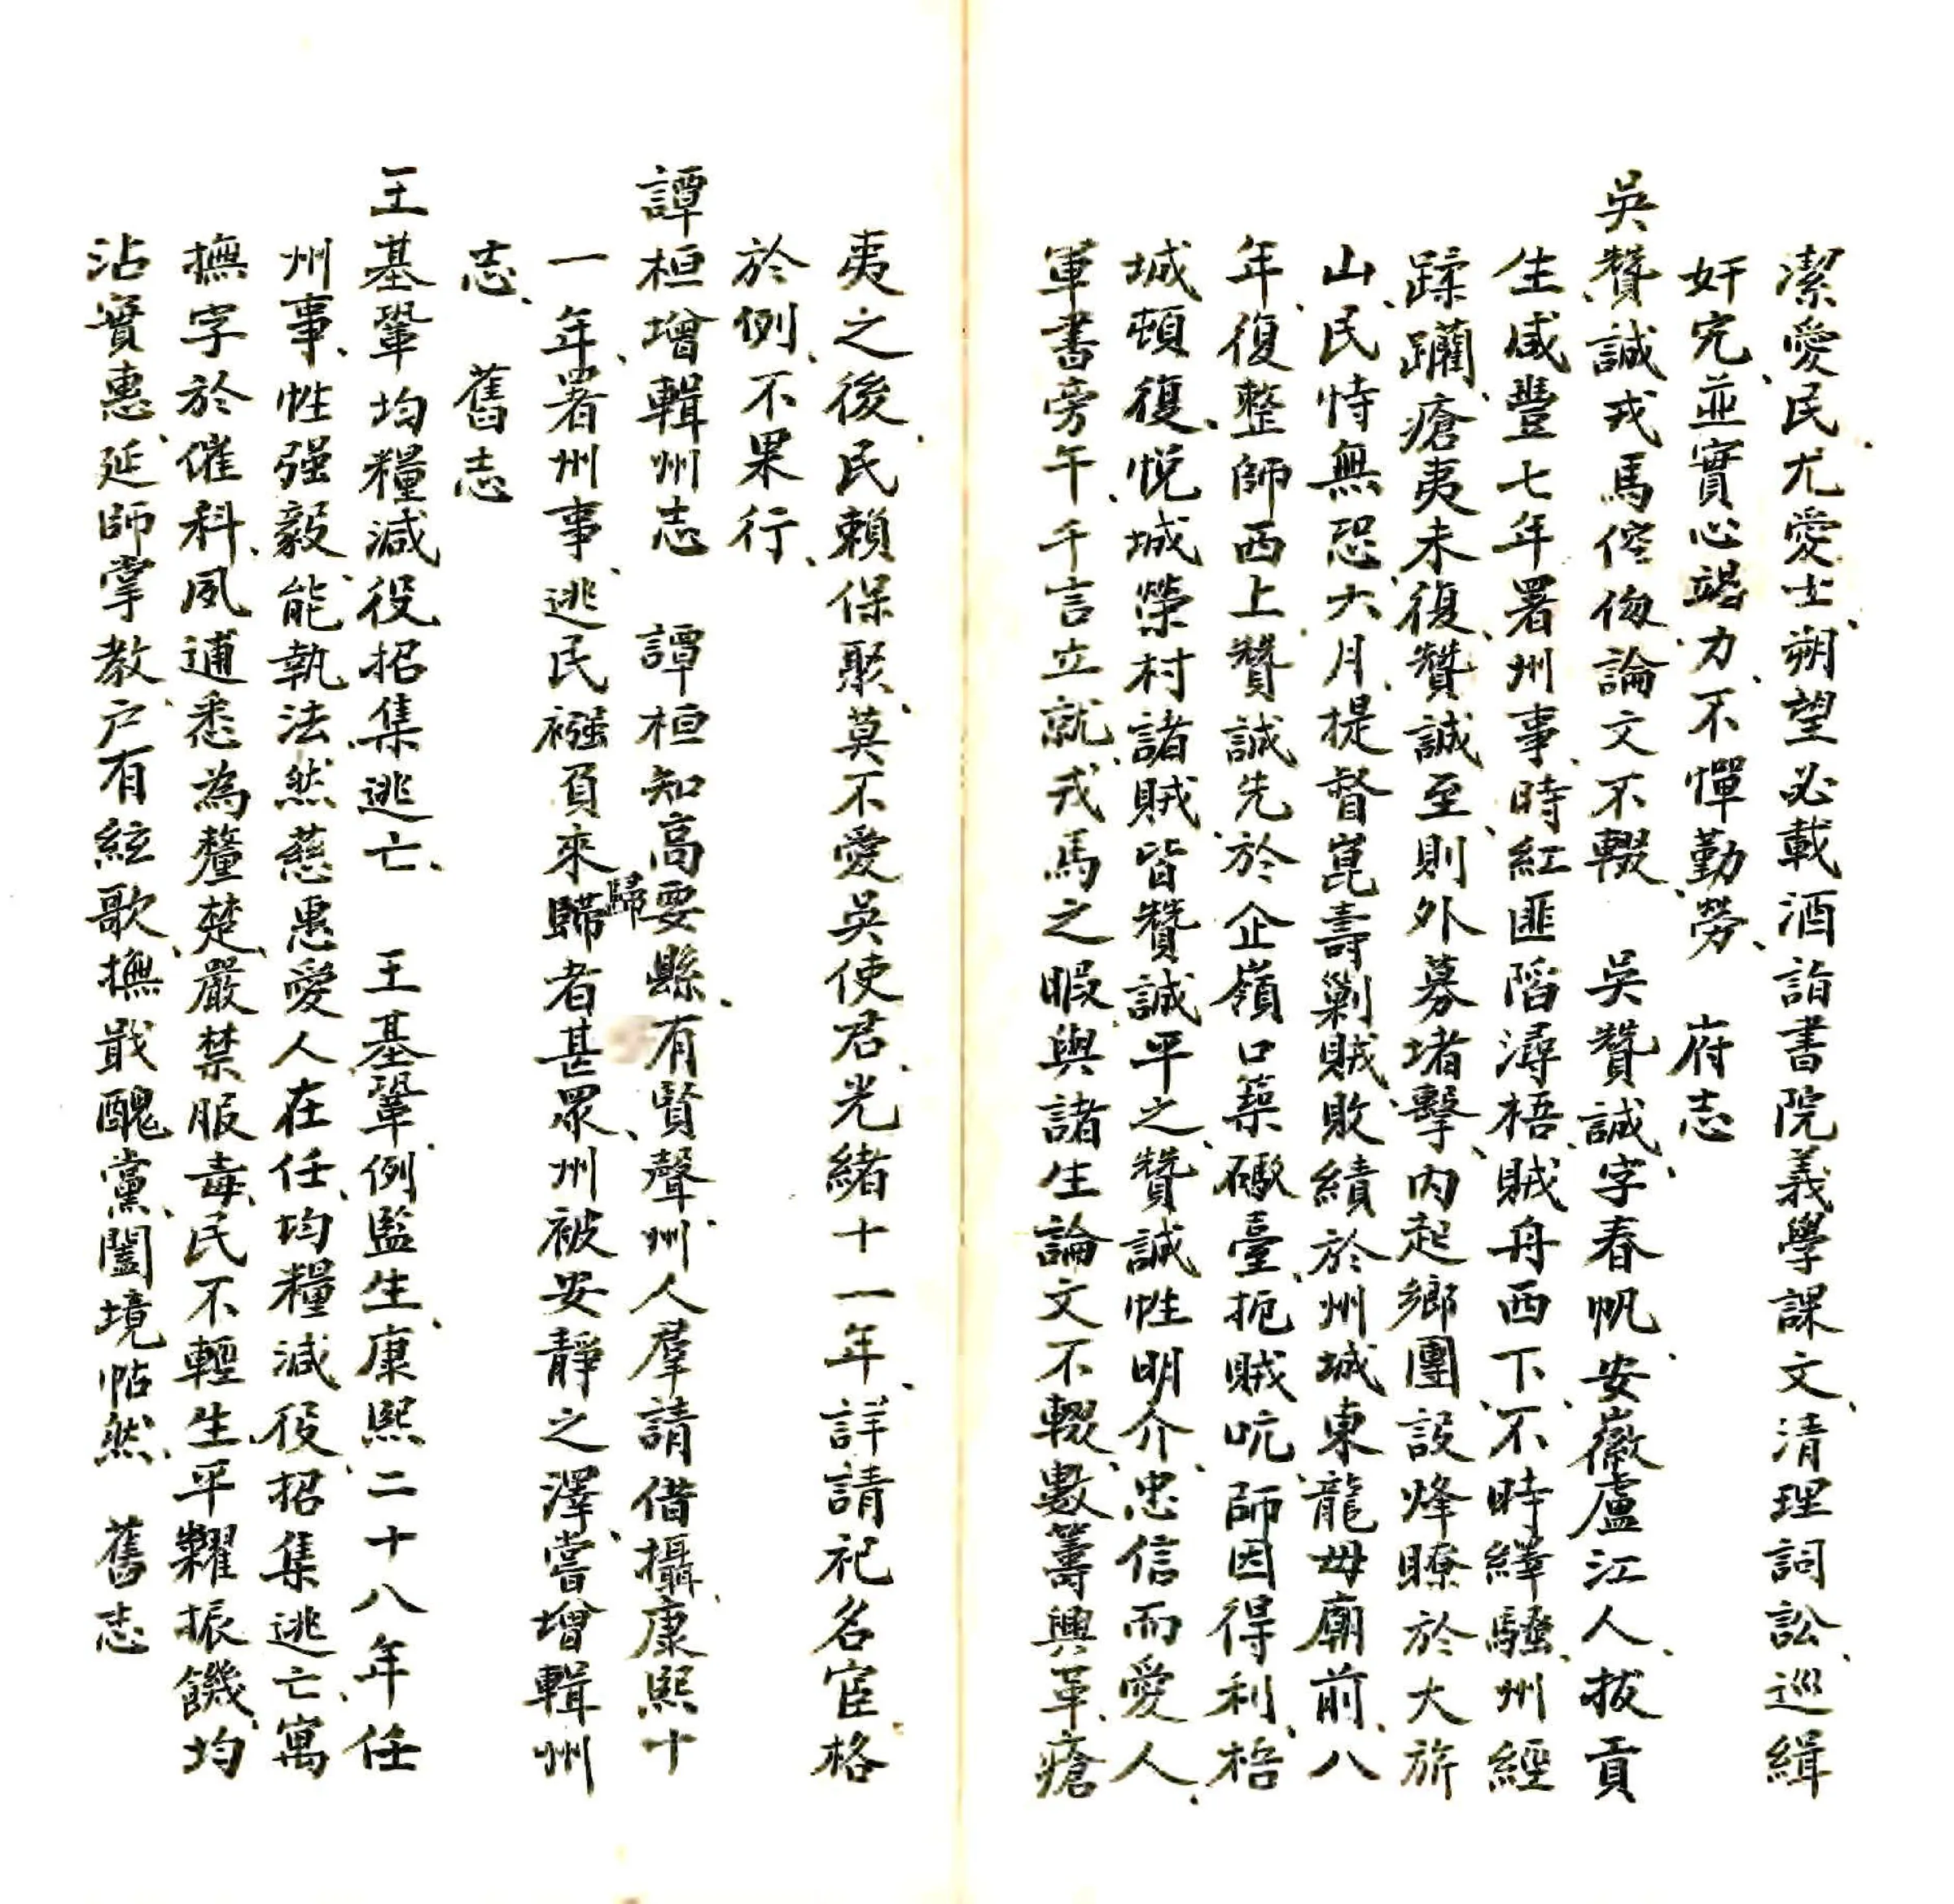 潔愛民、尤愛士、朔望必載酒詣書院義學課文、清理詞訟、巡緝
奸宄、並實心竭力、不憚勤勞、　府志
吳贊誠戎馬倥偬論文不輟　吳贊誠、字春帆、安徽盧江人、拔貢
生咸豐七年署州事、時紅匪陷潯梧、賊舟西下、不時繹騷、州經
蹂躪、瘡夷未復、贊誠至、則外募堵擊、內起鄉團、設烽瞭於大旂
山、民恃無恐、六月、提督崑壽剿賊、敗績於州城東龍母廟前、八
年、復整師西上、贊誠先於企嶺口築礮臺、扼賊吭、師因得利、梧
城頓復、悅城榮村諸賊、皆贊誠平之、贊誠性明介、忠信而愛人、
軍書旁午、千言立就、戎馬之暇、與諸生論文不輟、數籌興革、瘡
夷之後、民賴保聚、莫不愛吳使君、光緒十一年、詳請祀名宦、格
於例、不果行、
譚桓增輯州志　譚桓知高要縣、有賢聲、州人羣請借攝、康熙十
一年、署州事、逃民襁負來歸歸者甚眾、州被安靜之澤、嘗增輯州
志、　舊志
王基鞏均糧減役招集逃亡、　王基鞏、例監生、康熙二十八年任
州事、性强毅、能執法、然慈惠愛人、在任、均糧減役、招集逃亡、寓
撫字於催科、夙逋悉為釐楚、嚴禁服毒、民不輕生、平糶振饑、均
沾實惠、延師掌教、户有絃歌、撫戢醜黨、闔境帖然、　舊志